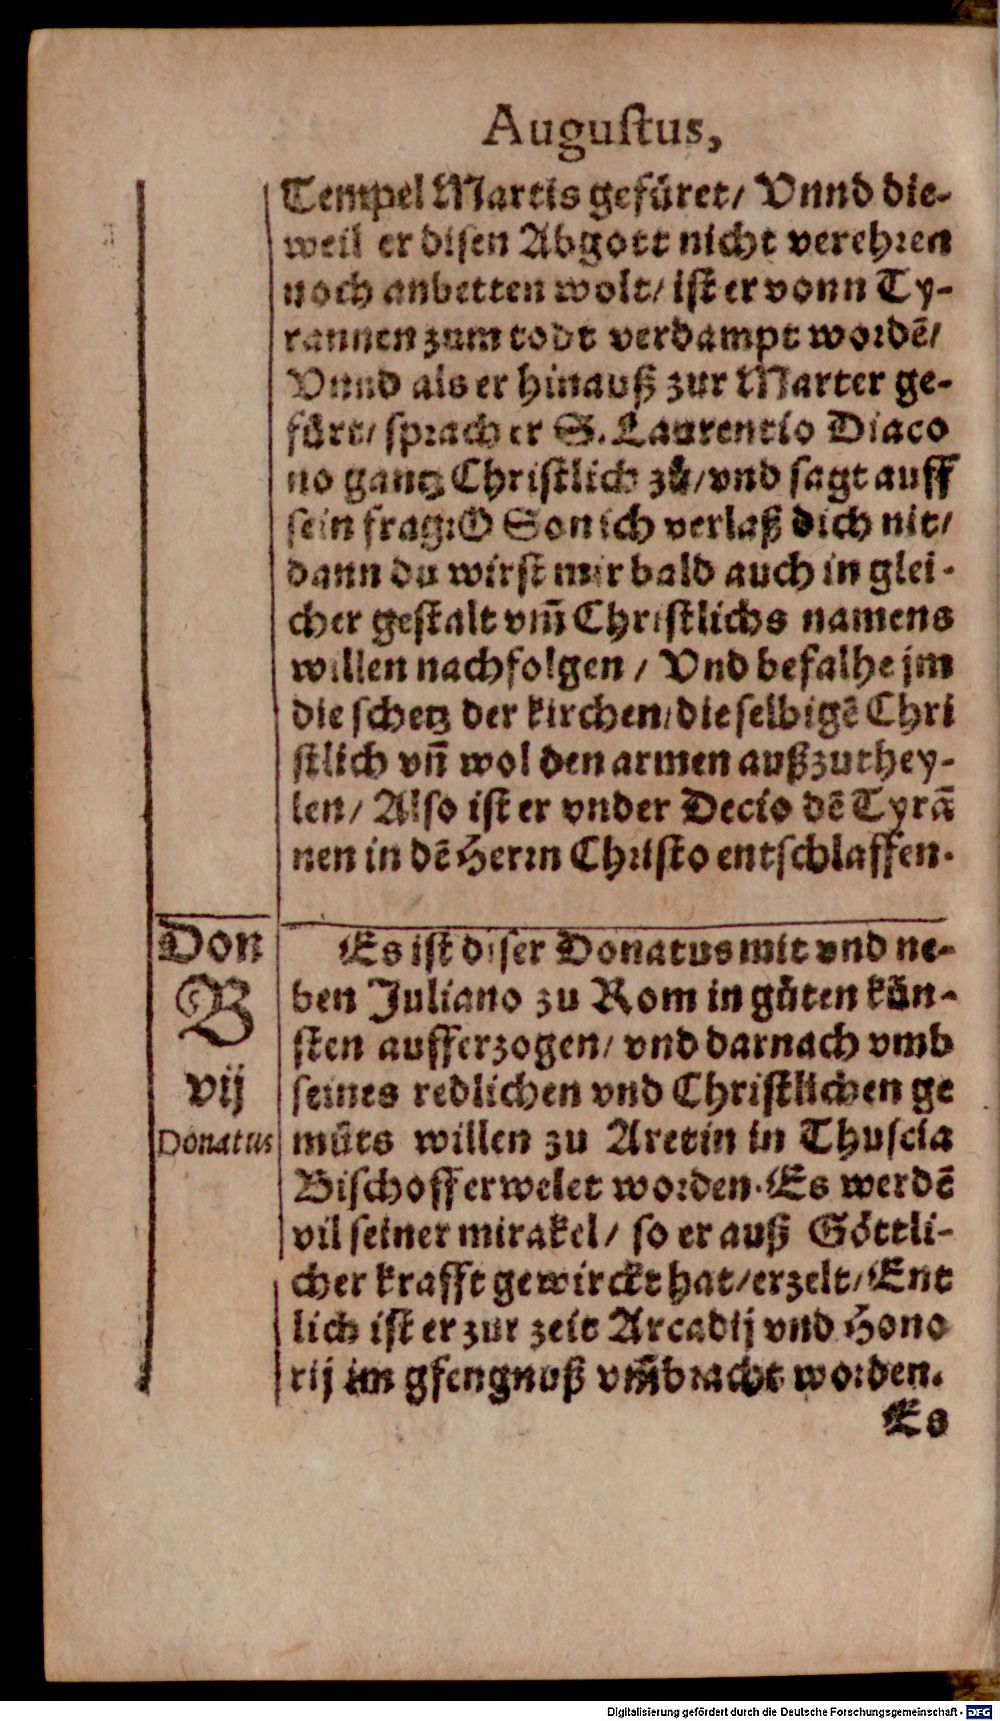 Augustus,
Tempel Martis gefüret/ Vnnd die-
weil er disen Abgott nicht verehren
noch anbetten wolt/ ist er vonn Ty-
rannen zum todt verdampt wordẽ/
Vnnd als er hinauß zur Marter ge-
fůrt/ sprach er S. Laurentio Diaco
no gantz Christlich zů/ vnd sagt auff
sein frag: O Son ich verlaß dich nit/
dann du wirst mir bald auch in glei-
cher gestalt vm̃ Christlichs namens
willen nachfolgen / Vnd befalhe jm
die schetz der kirchen/ die selbigẽ Chri
stlich vñ wol den armen außzuthey-
len/ Also ist er vnder Decio dẽ Tyrã
nen in dẽ Herrn Christo entschlaffen.
Don
B
vij
Donatus
Es ist diser Donatus mit vnd ne-
ben Juliano zu Rom in gůten kün-
sten aufferzogen/ vnd darnach vmb
seines redlichen vnd Christlichen ge
můts willen zu Aretin in Thuscia
Bischoff erwelet worden. Es werdẽ
vil seiner mirakel/ so er auß Göttli-
cher krafft gewirckt hat/ erzelt/ Ent
lich ist er zur zeit Arcadij vnd Hono
rij im gfengnuß vm̃bracht worden.
Es
Digitalisierung gefördert durch die Deutsche Forschungsgemeinschaft - DFG